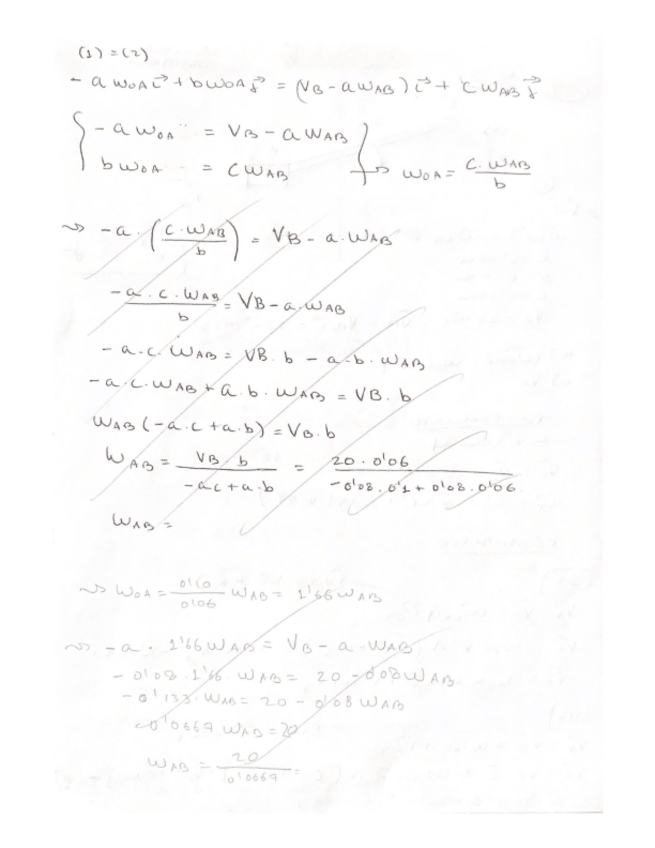 (1) = (2)
- a ω_OA i⃗ + b ω_OA j⃗ = (V_B - a ω_AB) i⃗ + c ω_AB j⃗
{ - a ω_OA = V_B - a ω_AB
b ω_OA = c ω_AB } → ω_OA = c. ω_AB / b
⇝ - a · (c · ω_AB / b) = V_B - a · ω_AB
- a . c . ω_AB / b = V_B - a · ω_AB
- a . c . ω_AB = V_B . b - a · b · ω_AB
- a . c . ω_AB + a . b . ω_AB = V_B . b
ω_AB (- a . c + a . b) = V_B . b
ω_AB = V_B . b / - a c + a · b = 20 . 0'06 / - 0'08 . 0'1 + 0'08 . 0'06
ω_AB =
⇝ ω_OA = 0'10 / 0'06 ω_AB = 1'66 ω_AB
⇝ - a · 1'66 ω_AB = V_B - a · ω_AB
- 0'08 . 1'66 . ω_AB = 20 - 0'08 ω_AB
- 0'133 . ω_AB = 20 - 0'08 ω_AB
0'0667 ω_AB = 20
ω_AB = 20 / 0'0667 =